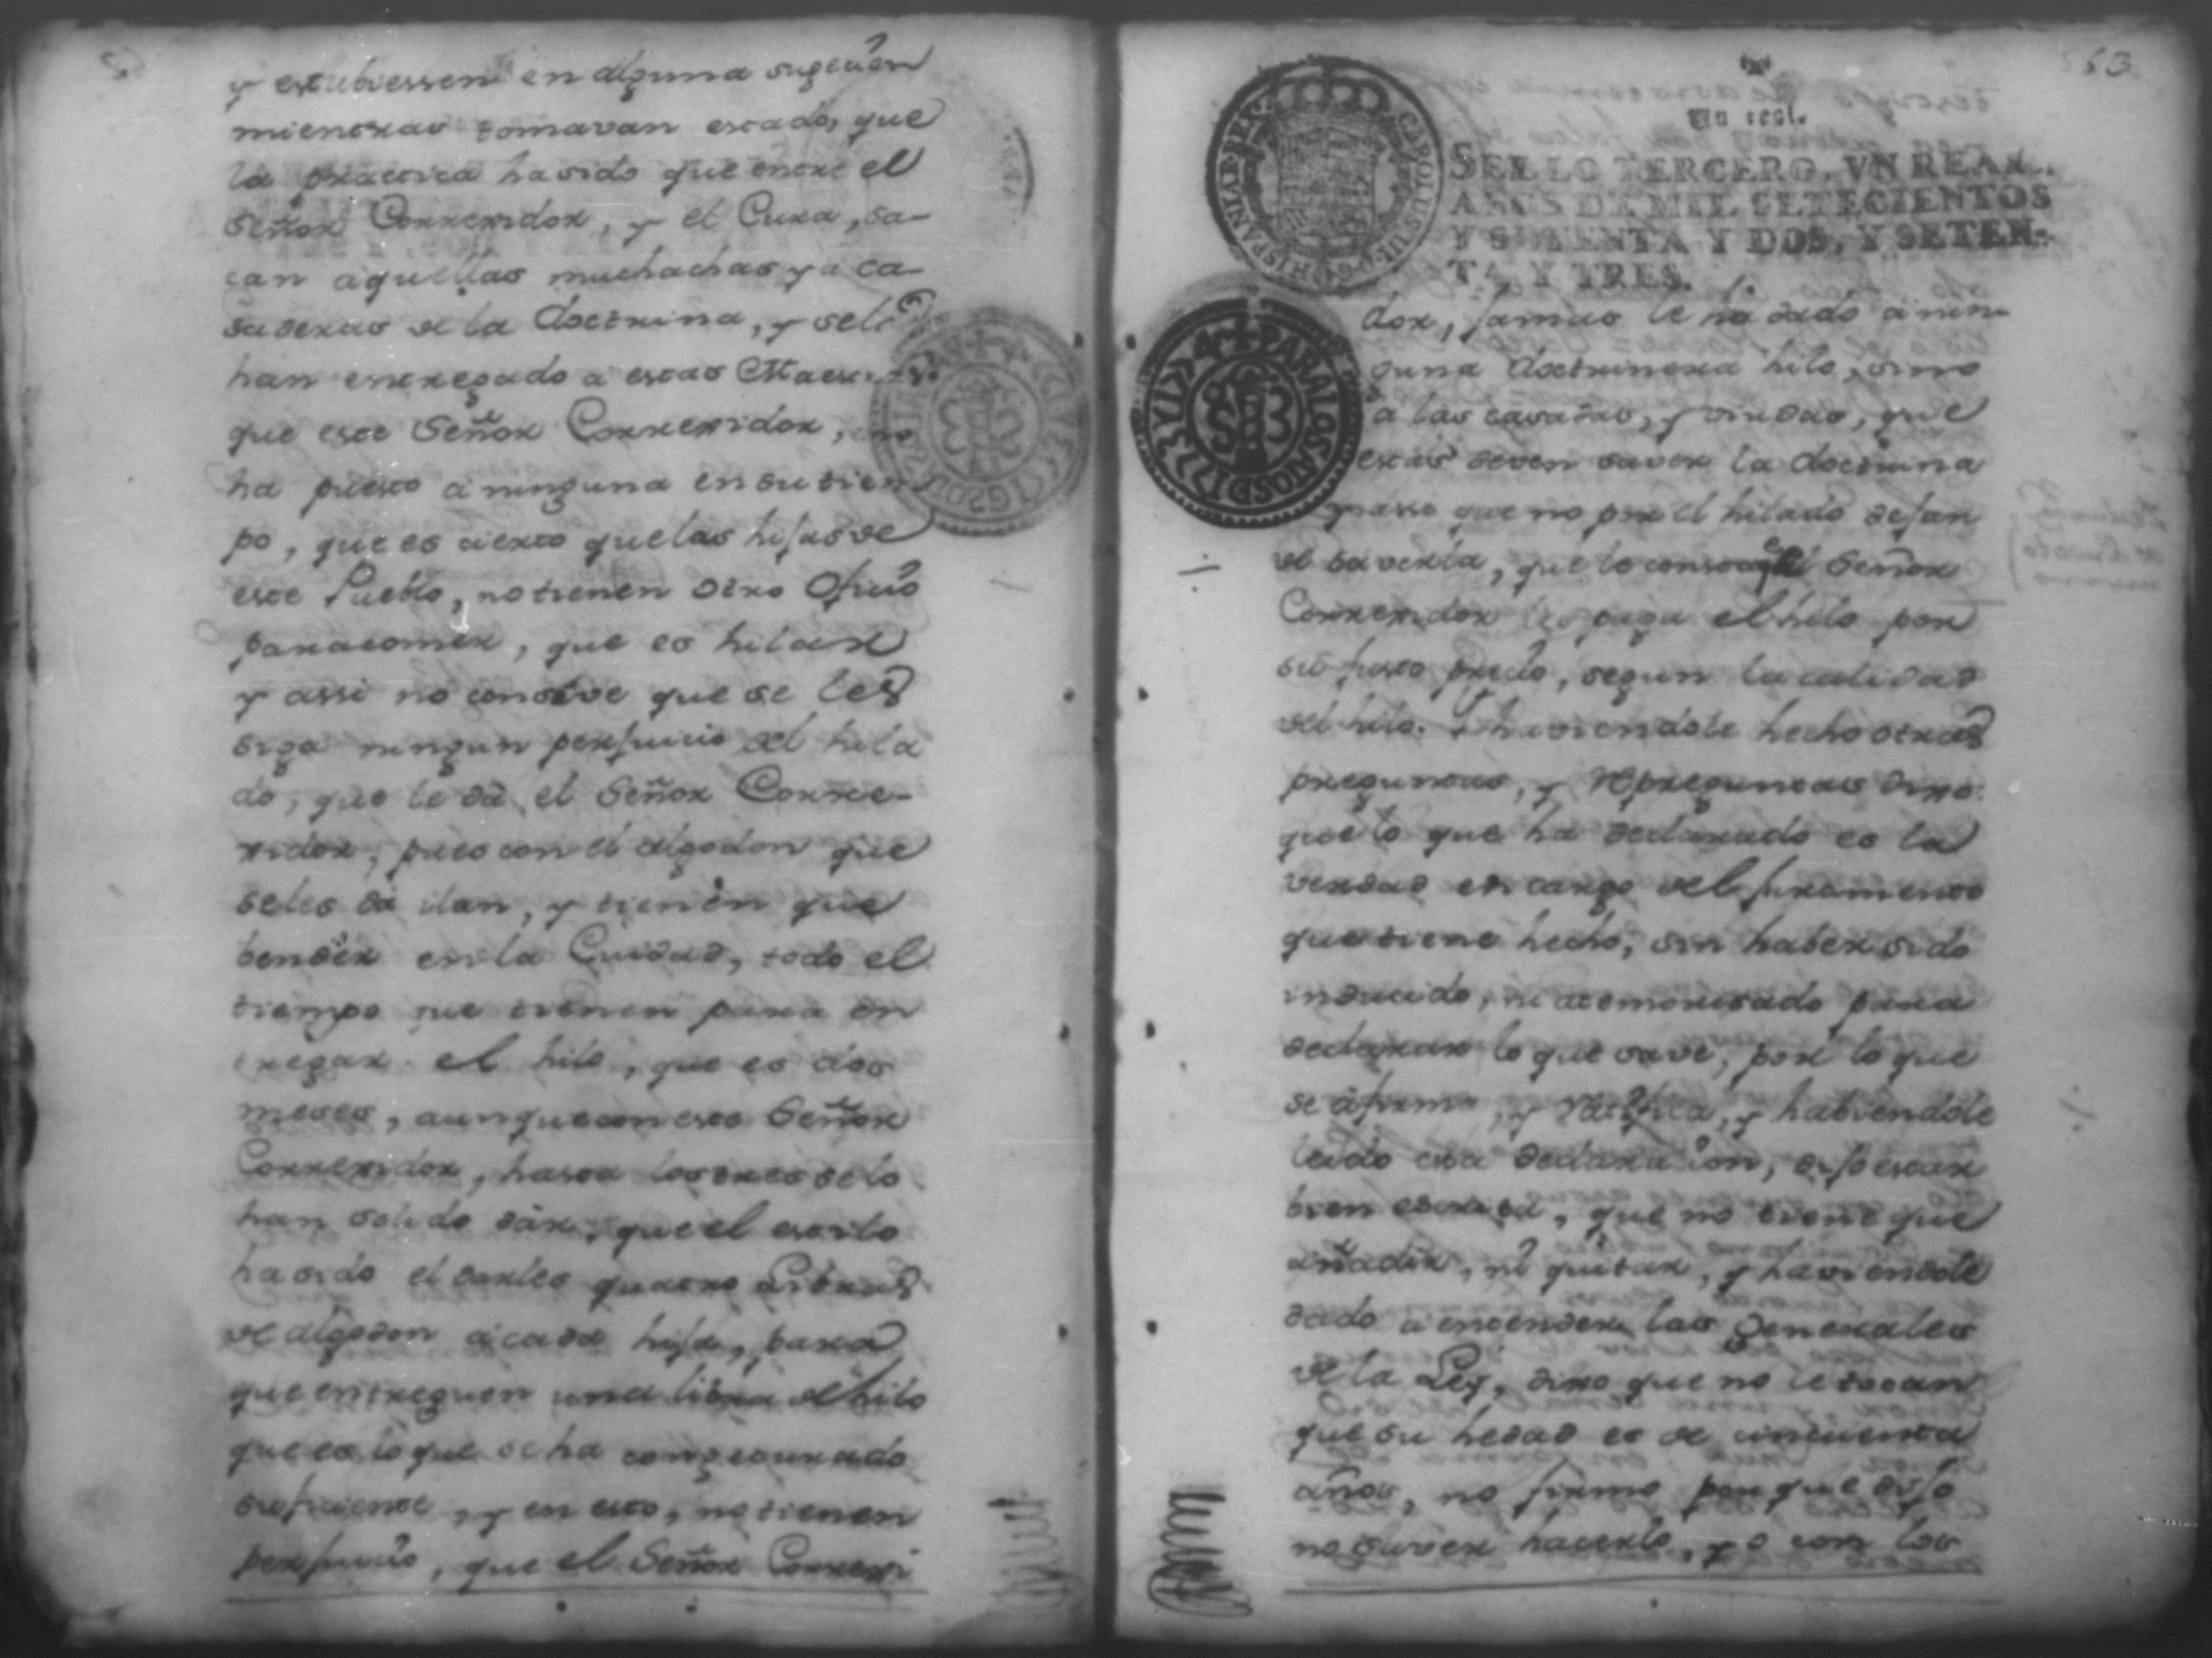 y estubiessen en alguna sugecion
mientras tomavan estado, que
la practica ha sido que entre el
Señor Correxidor, y el Cura, sa-
can aquellas muchachas ya ca-
saderas de la doctrina, y sele
han entregado a estas Maestras
que este Señor Correxidor, no
ha puesto a ninguna en su tiem
po, que es cierto que las hijas de
este Pueblo, no tienen otro Oficio
para comer, que es hilar
y assi no consive que se les
siga ningun perjuicio del hila
do, que le da el Señor Corre-
xidor, pues con el algodon que
seles dá ilan, y tienen que
bender en la Cuidad, todo el
tiempo que tienen para en
tregar el hilo, que es dos
meses, aunque con este Señor
Correxidor, hasta los tres se lo
han solido dár, que el estilo
ha sido el darles quatro Libras
de algodon a cada hija, para
que entreguen una libra de hilo
que es lo que se ha conseturado
suficiente, y en esto, no tienen
perjuicio, que el Señor Correxi
53
Un real.
SELLO TERCERO, VN REAL,
AÑOS DE MIL SETECIENTOS
Y SETENTA Y DOS, Y SETEN-
TA, Y TRES.
CAROLUS III D G HISPANIAR REX
PARA LOS AÑOS D 1773 Y 1774
dor, jamas le ha dado a nin-
guna doctrinera hilo, sino
a las casadas, y viudas, que
estas deven saver la doctrina
y assi que no por el hilado dejan
de saverla, que le consta que el Señor
Correxidor les paga el hilo por
su justo precio, segun la calidad
del hilo. Y haviendole hecho otras
preguntas, y repreguntas dixo
que lo que ha declarado es la
verdad en cargo del juramento
que tiene hecho, sin haber sido
inducido, ni atemorisado para
declarar lo que save, por lo que
se afirma, y ratifica, y habiendole
leido esta declaracion, dijo estar
bien escrita, que no tiene que
añadir, ni quitar, y haviendole
dado a entender las Generales
de la Ley, dixo que no le tocan
que su hedad es de cincuenta
años, no firmo por que dijo
no saver hacerlo, yo con los